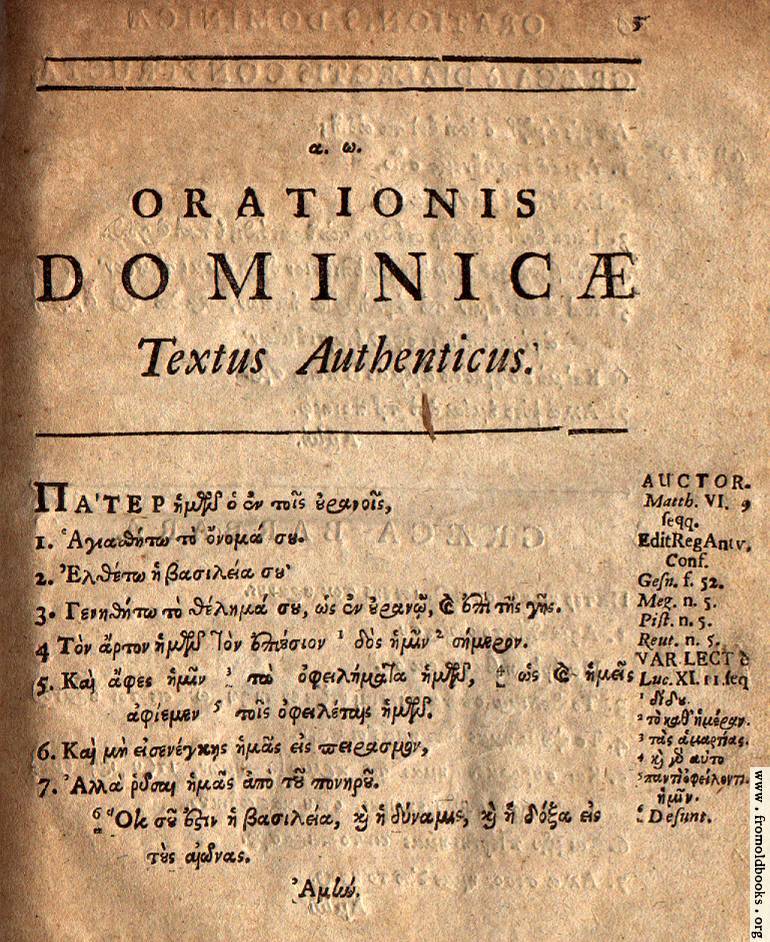 5
α. ω.
ORATIONIS
DOMINICÆ
Textus Authenticus.
ΠΑ'ΤΕΡ ἡμῶν ὁ ἐν τοῖς ȣ̓ρανοῖς,
1. Ἁγιαθήτω τὸ ὄνομά σȣ.
2. Ἐλθέτω ἡ βασιλεία σȣ·
3. Γενηθήτω τὸ θέλημά σȣ, ὡς ἐν ȣ̓ρανῷ, ϗ ἐπὶ τῆς γῆς.
4 Τὸν ἄρτον ἡμῶν τὸν ἐπιέσιον ¹ δὸς ἡμῖν ² σήμερον.
5. Καὶ ἄφες ἡμῖν ³ τὰ ὀφειλήματα ἡμῶν, ⁴ ὡς ϗ ἡμεῖς
ἀφίεμεν ⁵ τοῖς ὀφειλέταις ἡμῶν.
6. Καὶ μὴ εἰσενέγκῃς ἡμᾶς εἰς πειρασμὸν,
7. Ἀλλὰ ῥῦσαι ἡμᾶς ἀπὸ τȣ͂ πονηρȣ͂.
⁶ Ὅτι σȣ͂ ἐστιν ἡ βασιλεία, ϗ ἡ δύναμις, ϗ ἡ δόξα εἰς
τȣ̀ς αἰῶνας.
Ἀμήν.
AUCTOR.
Matth. VI. 9
seqq.
EditRegAntv.
Conf.
Gesn. f. 52.
Meg. n. 5.
Pist. n. 5.
Reut. n. 5.
VAR LECT
Luc. XI. 11. seq
¹ δίδȣ.
² τὸ καθ' ἡμέραν.
³ τὰς ἁμαρτίας.
⁴ ϗ γὸ αὐτο
⁵ παντὶ ὀφείλοντι
ἡμῖν.
⁶ Desunt.
www.fromoldbooks.org